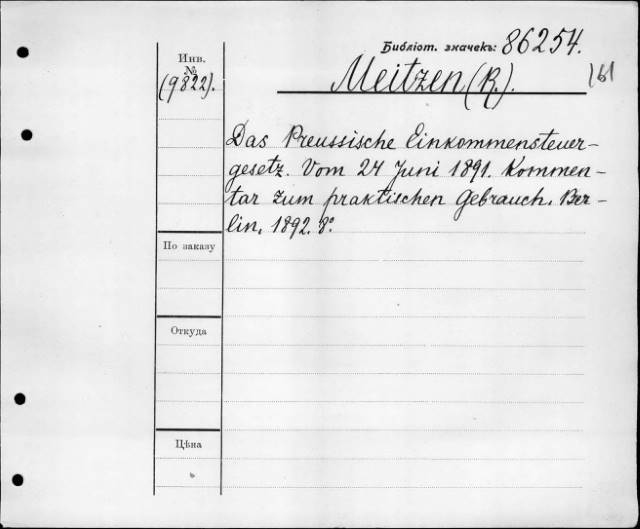 Библіот. значекъ: 86254.
Инв.
№
(9822).
Meitzen (R.).
161
Das Preussische Einkommensteuer-
gesetz. Vom 24 Juni 1891. Kommen-
tar zum praktischen Gebrauch. Ber-
lin, 1892. 8°.
По заказу
Откуда
Цѣна